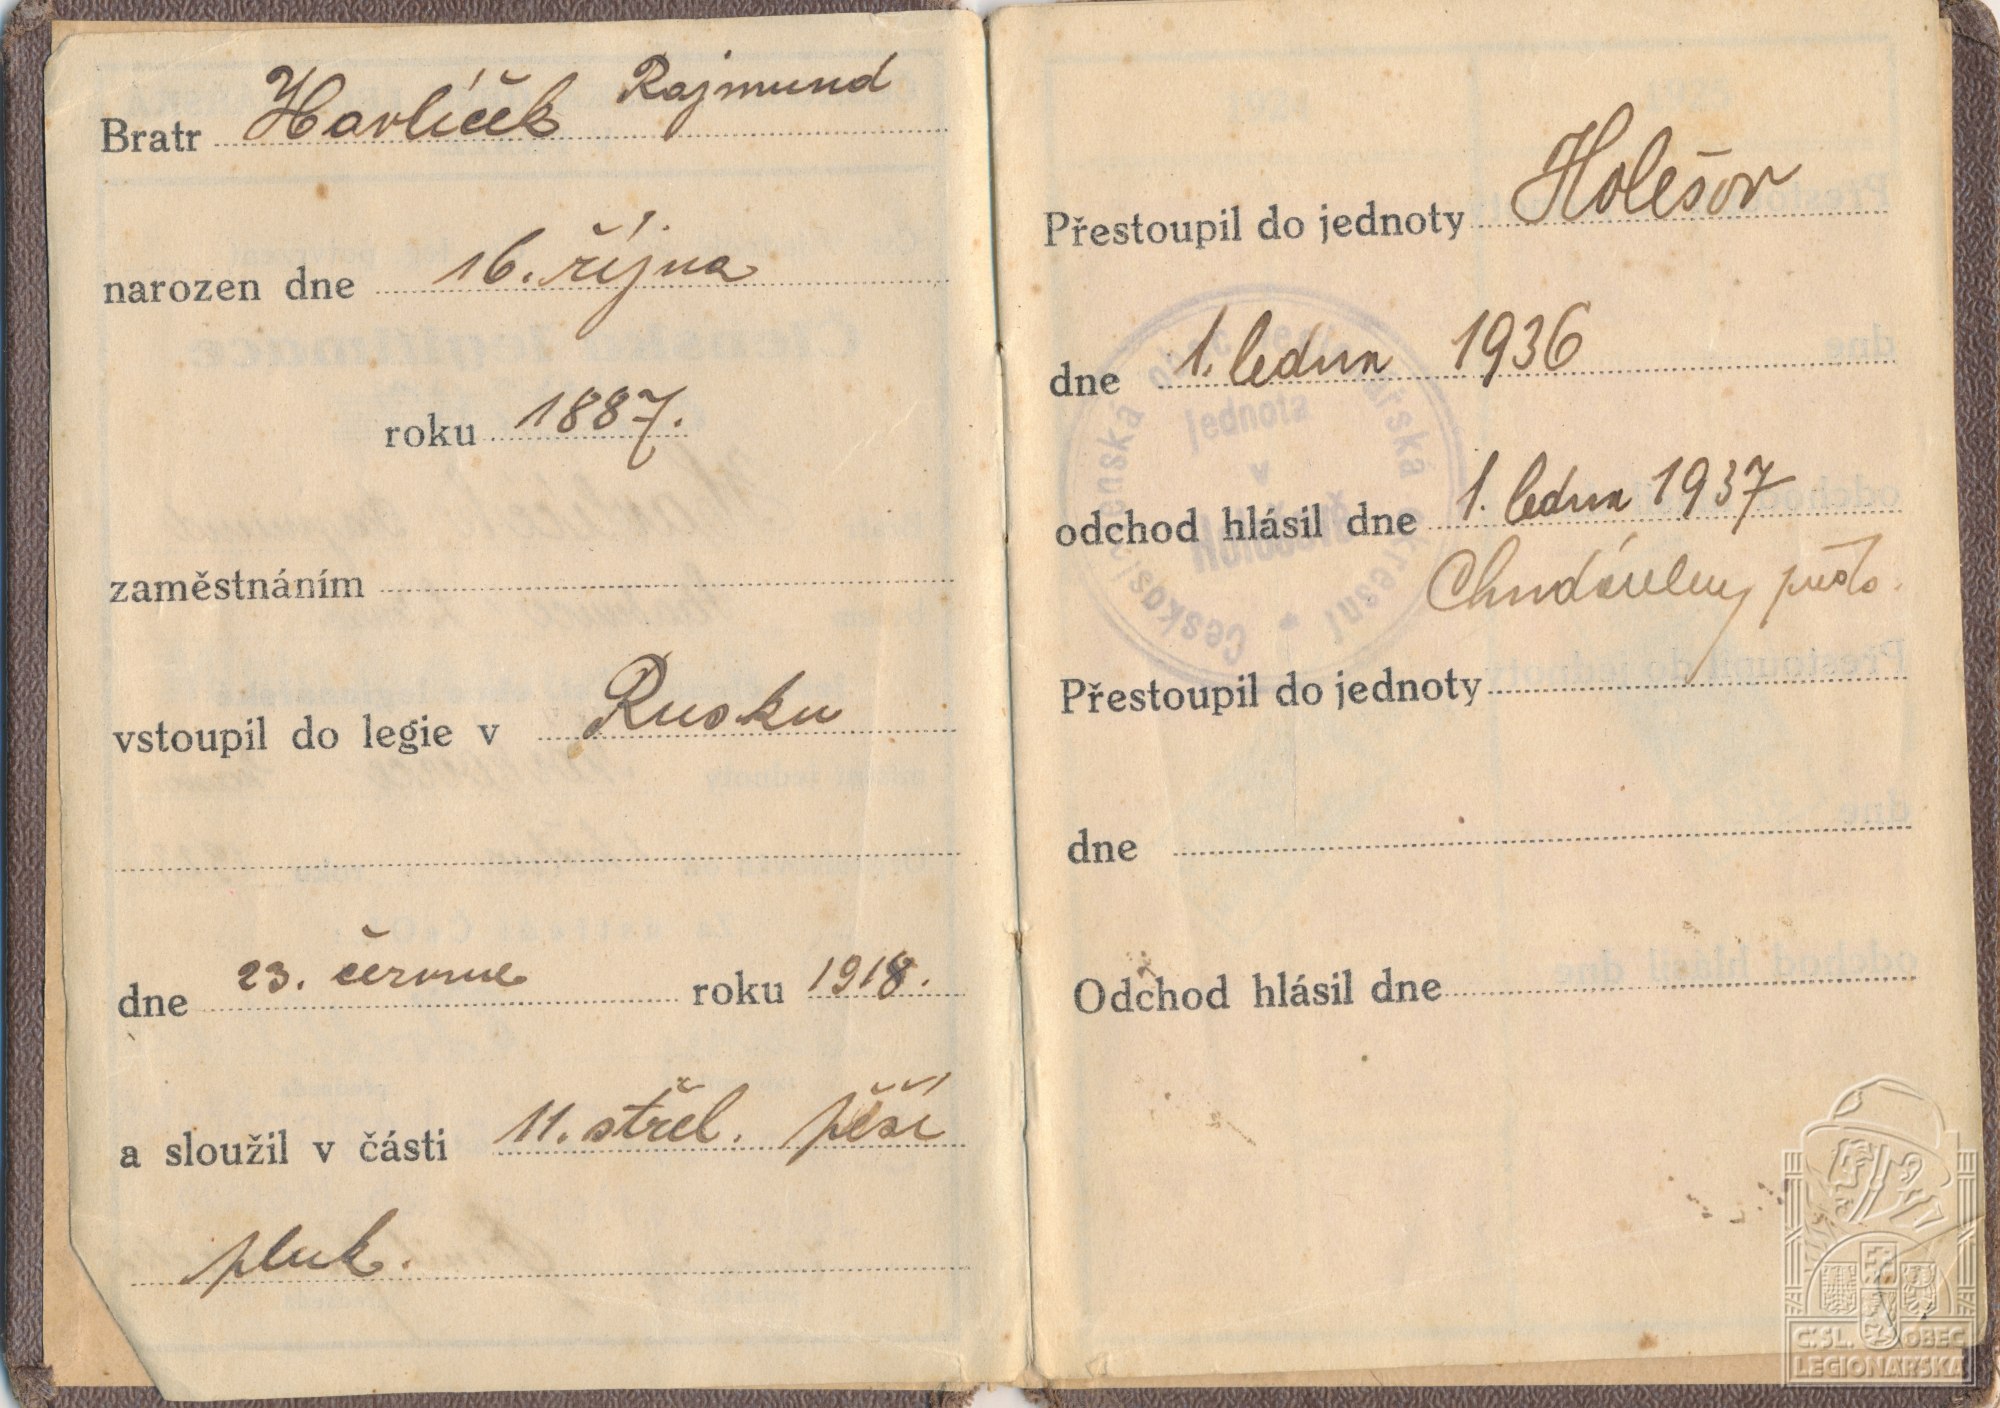 Bratr Havlíček Rajmund
narozen dne 16. října
roku 1887.
zaměstnáním
vstoupil do legie v Rusku
dne 23. června roku 1918.
a sloužil v části 11. střel. pěší
pluk.
Přestoupil do jednoty Holešov
dne 1. ledna 1936
odchod hlásil dne 1. ledna 1937
Přestoupil do jednoty
dne
Odchod hlásil dne
Československá obec legionářská
jednota
v
Holešově
ČSL. OBEC
LEGIONÁŘSKÁ